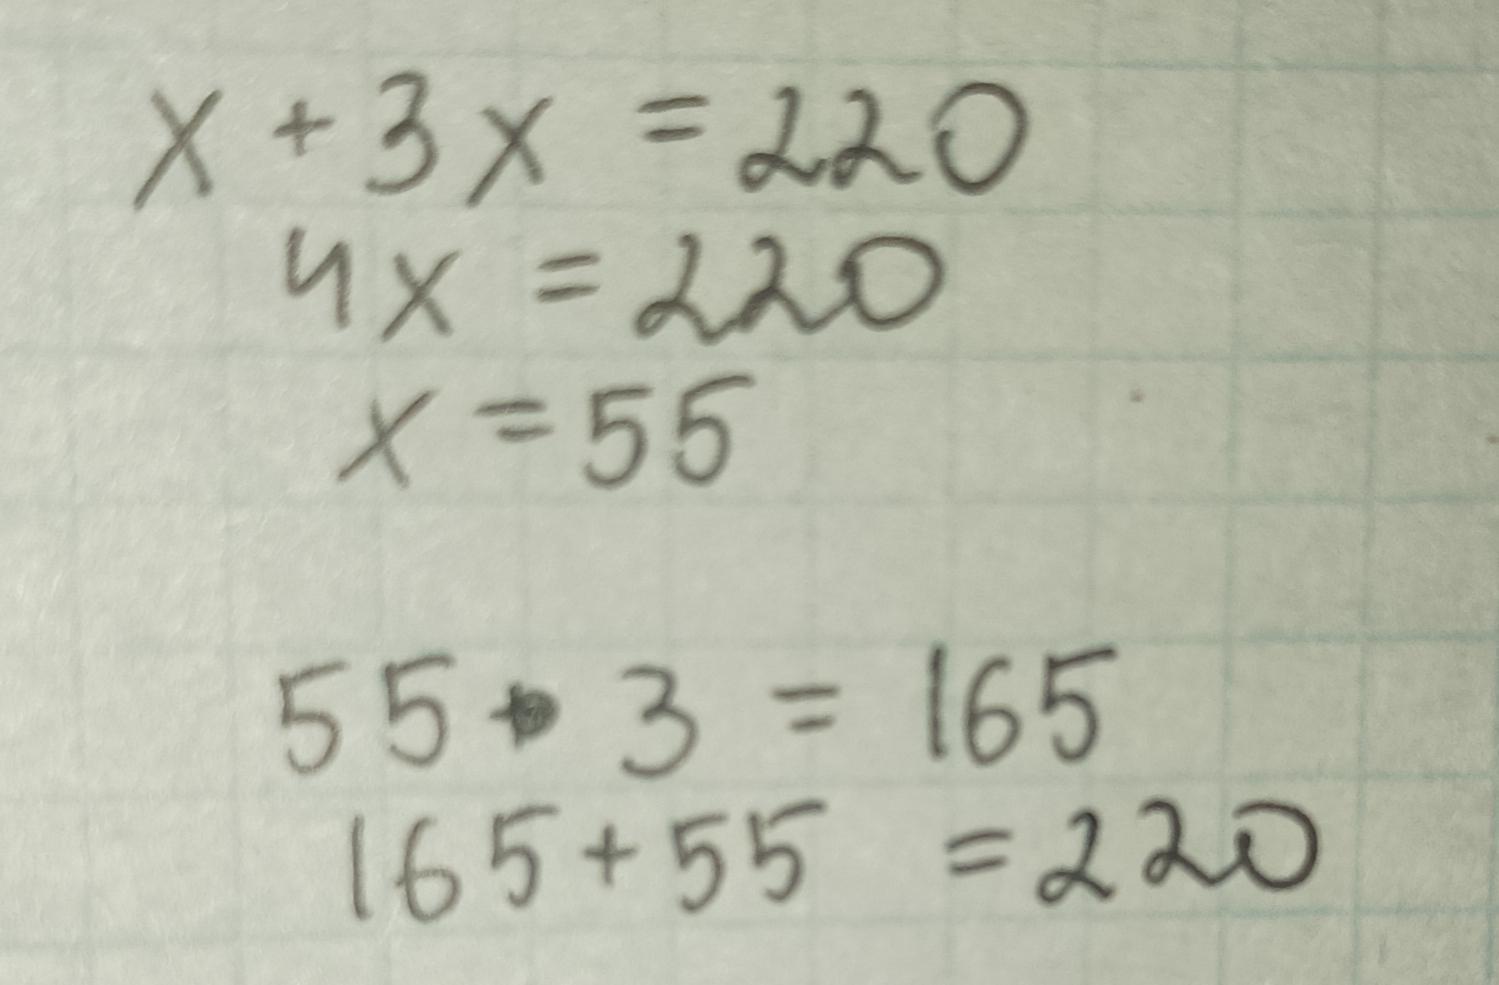 x + 3x = 220
4x = 220
x = 55
55 • 3 = 165
165 + 55 = 220